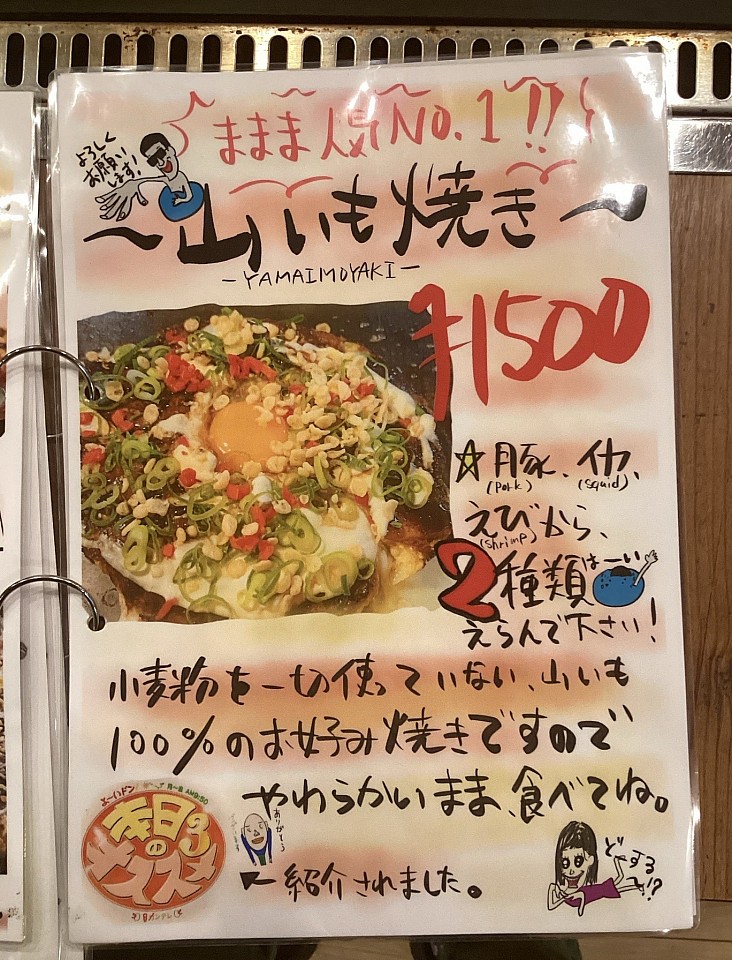 ままま人気No.1!!
よろしく
お願い
します!
〜山いも焼き〜
-YAMAIMOYAKI-
¥1500
☆豚、イカ、
(pork) (squid)
えびから、
(shrimp)
2種類
はーい
えらんで下さい!
小麦粉を一切使っていない、山いも
100%のお好み焼きですので
やわらかいまま、食べてね。
よ〜いドン
月〜金 AM9:50
本日の3
オススメ
ありがとう
←紹介されました。
どーする
!?